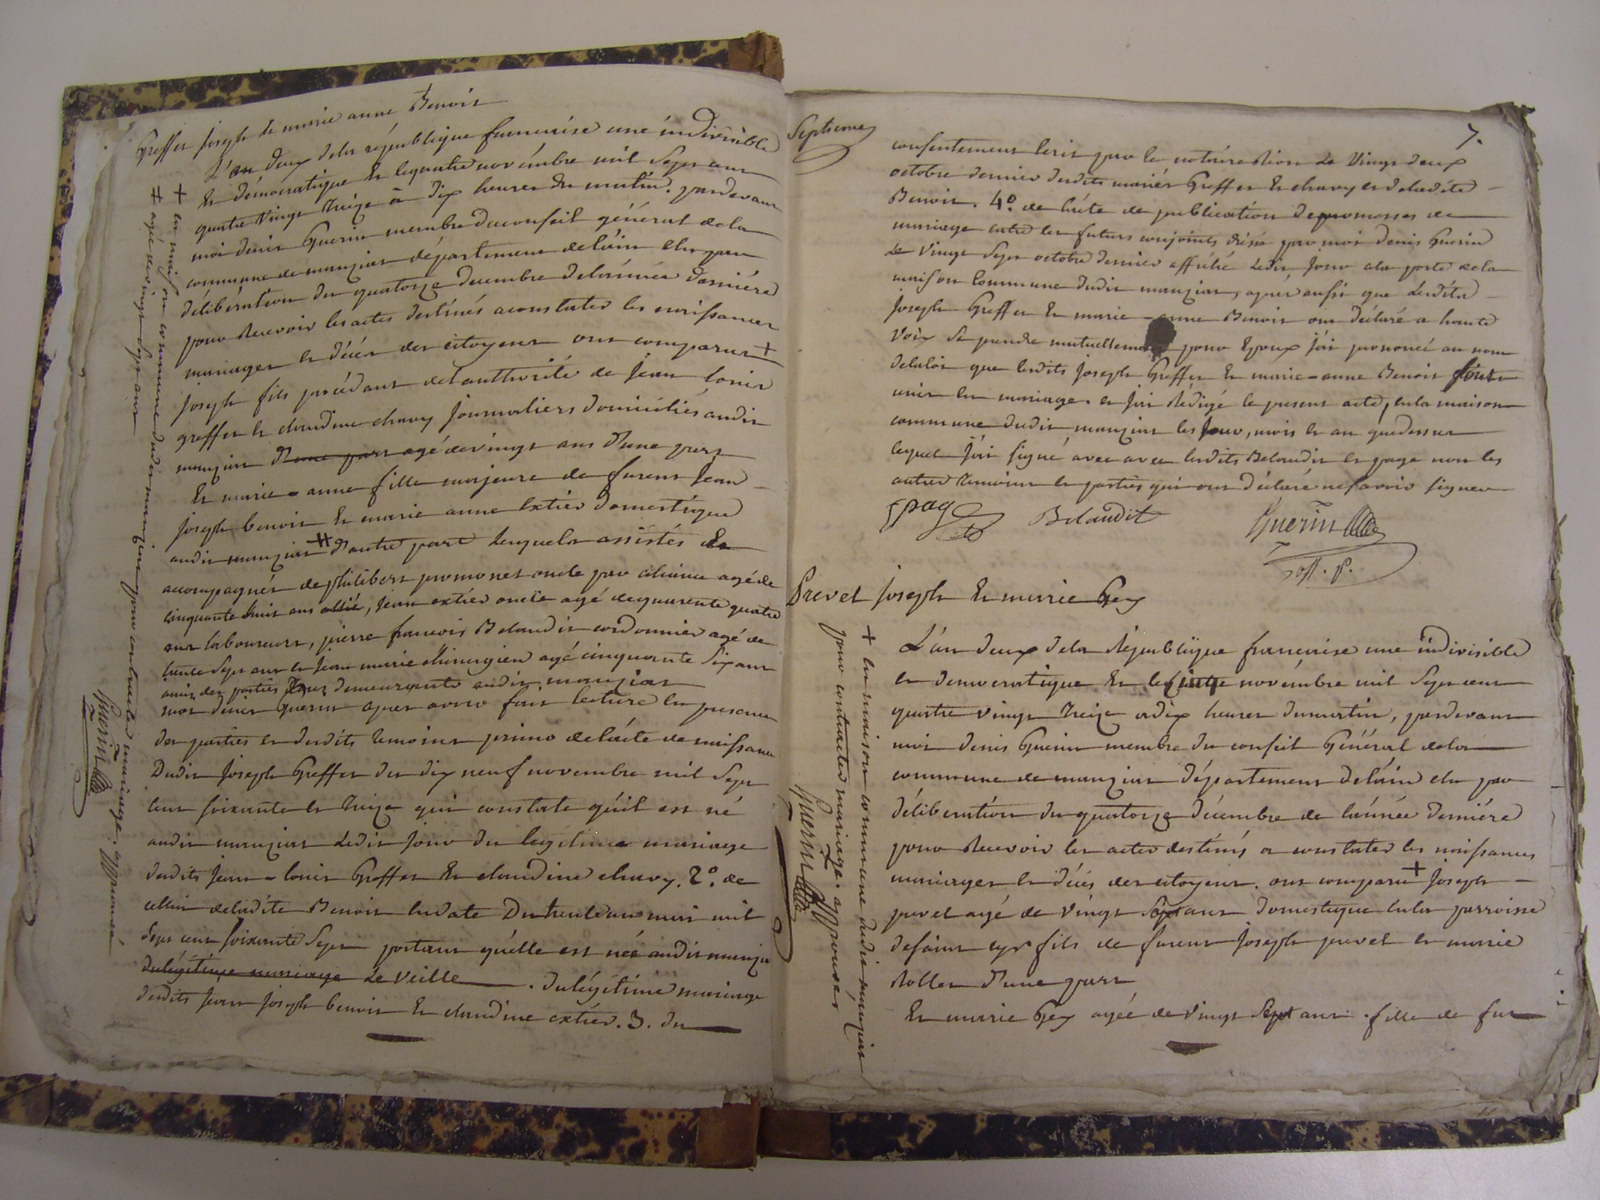 Greffer Joseph & marie anne Benoit
L'an deux dela république francaise une indivisible
et démocratique et le quatre novembre mil Sept cent
quatre vingt treize à dix heures du matin. pardevant
moi denis Guerin membre du conseil général dela
commune de manziat département delain elu par
délibération du quatorze décembre delannée dernière
pour Recevoir les actes destinés a constater les naissances
mariages et décés des citoyens ont comparus +
Joseph fils procédant del authorité de Jean louis
greffer et claudine chavy Journaliers domiciliés audit
manziat d'une part agé de vingt ans d'une part
Et marie-anne fille majeure de furent Jean
Joseph benoit et marie anne extier domestique
audit manziat # d'autre part lesquels assistés et
accompagnés de philibert promonet oncle par aliance agé de
cinquante huit ans allié, Jean extier oncle agé de quarente quatre
ans laboureurs, pierre francois Belaudit cordonnier agé de
trente Sept ans et Jean marie chirurgien agé cinquante Six ans
amis des parties tous demeurants audit manziat
moi denis Guerin apres avoir fait lecture en presence
des parties et desdits temoins primo de lacte de naissance
Dudit Joseph Greffer du dix neuf novembre mil Sept
cent soixante et treize qui constate qu'il est né
audit manziat Ledit Jour du legitime mariage
desdits Jean-louis Greffer et claudine chavy. 2°. de
celui deladite Benoit en date Du trente un mai mil
Sept cent soixante Sept portant quelle est née audit manziat
du légitime mariage Le Veille . du légitime mariage
desdits Jean Joseph benoit et claudine extier. 3. du
+ en maison commune dudit manziat pour contracter mariage. approuvé
# agée de vingt Sept ans
Guerin
Septieme
7.
consentement Ecrit par le notaire de Vingt deux
octobre dernier desdits mariés Greffer et chavy et deladite
Benoit. 4°. de l'acte de publication de promesses de
mariage entre les futurs conjoints drésé par moi denis Guerin
Le Vingt Sept octobre dernier affiché Ledit Jour a la porte dela
maison Commune dudit manziat, apres aussi que Lesdits
Joseph Greffer et marie-anne Benoit ont déclaré a haute
Voix Se prendre mutuellement pour Epoux J'ai prononcé au nom
delaloi que lesdits Joseph Greffer et marie-anne Benoit sont
unis en mariage. et J'ai Rédigé le present acte, enla maison
commune dudit manziat les Jour, mois et an quedessus
lequel J'ai signé avec avec lesdits Belaudit et page non les
autres temoins et parties qui ont déclaré ne savoir signer
page Belaudit Guerin
off. p.
Prevet Joseph et marie Gey
L'an deux dela Republique francaise une indivisible
et democratique et le cinq novémbre mil Sept cent
quatre vingt treize adix heures dumatin, pardevant
moi denis Guerin membre du conseil Général dela
commune de manziat département delain elu par
déliberation du quatorze décembre de lannée derniére
pour Recevoir les actes destinés a constater les naissances
mariages et décés des citoyens. ont comparu + Joseph
prevet agé de Vingt Sept ans domestique enla parroisse
de saint cyr fils de furent Joseph prevet et marie
Rollet d'une part
Et marie Gey agée de Vingt Sept ans. fille de fut
+ en maison commune dudit manziat
pour contracter mariage. approuvés
Guerin